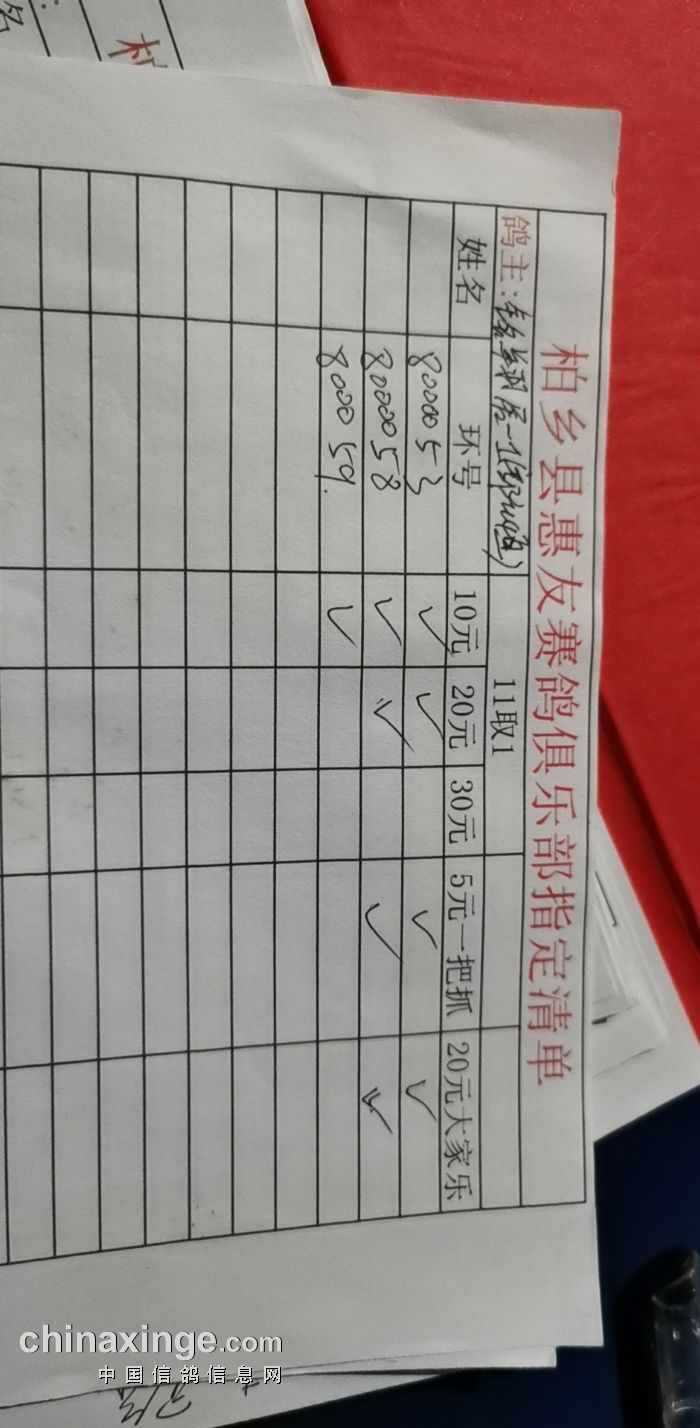 柏乡县惠友赛鸽俱乐部指定清单
鸽主:
11取1
姓名 环号 10元 20元 30元 5元一把抓 20元大家乐
8000053 ✓ ✓ ✓ ✓
8000058 ✓ ✓ ✓ ✓
8000059. ✓
chinaxinge.com
中国信鸽信息网